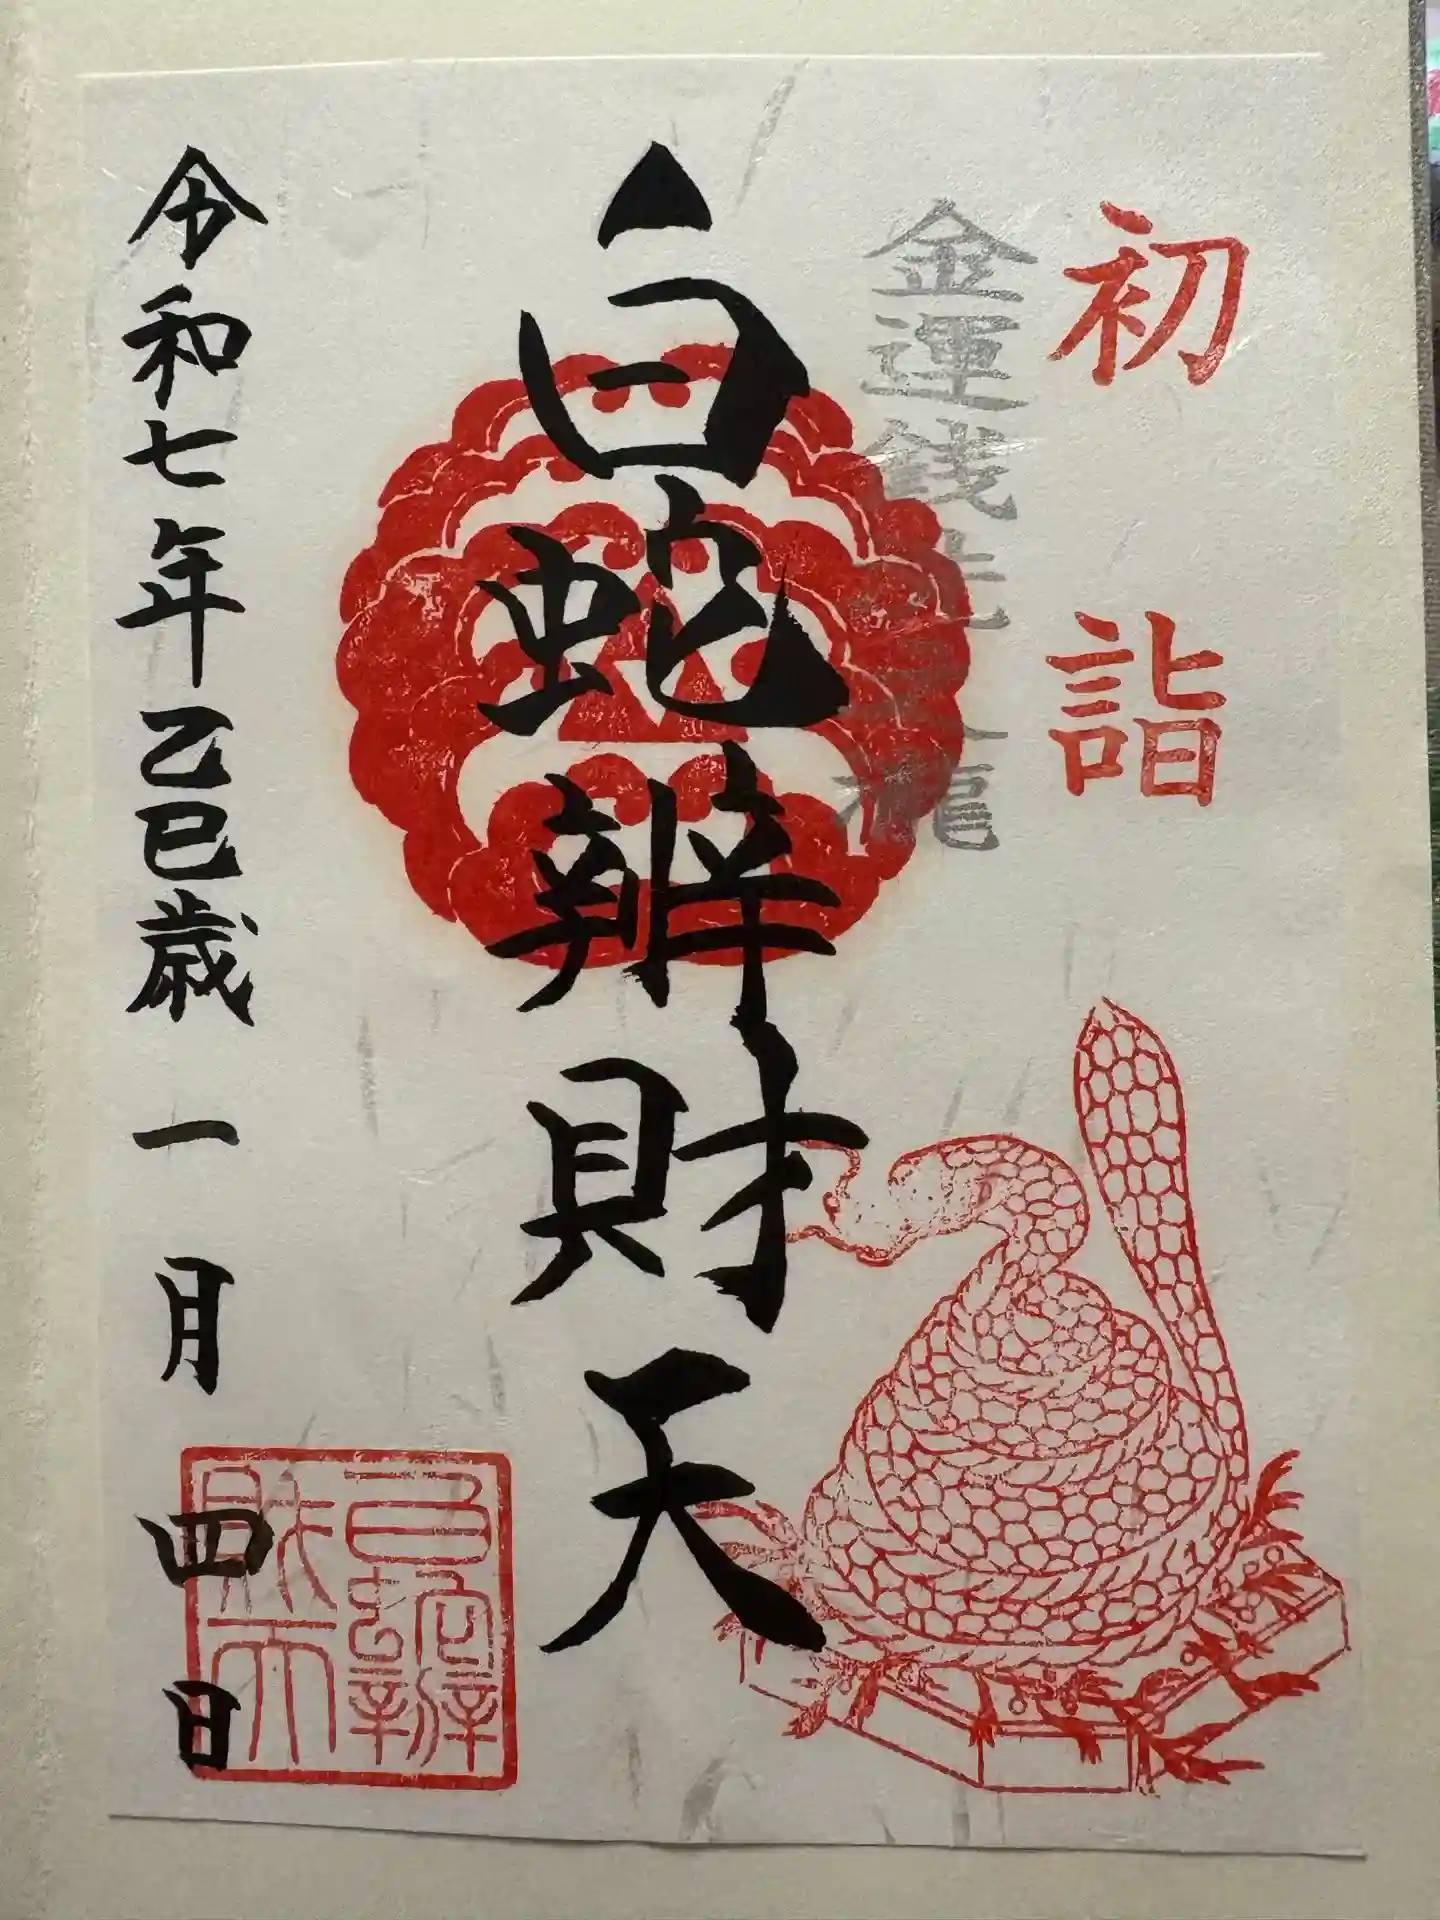 初詣
金運銭洗
白蛇辨財天
令和七年乙巳歳一月四日
白蛇辨財天